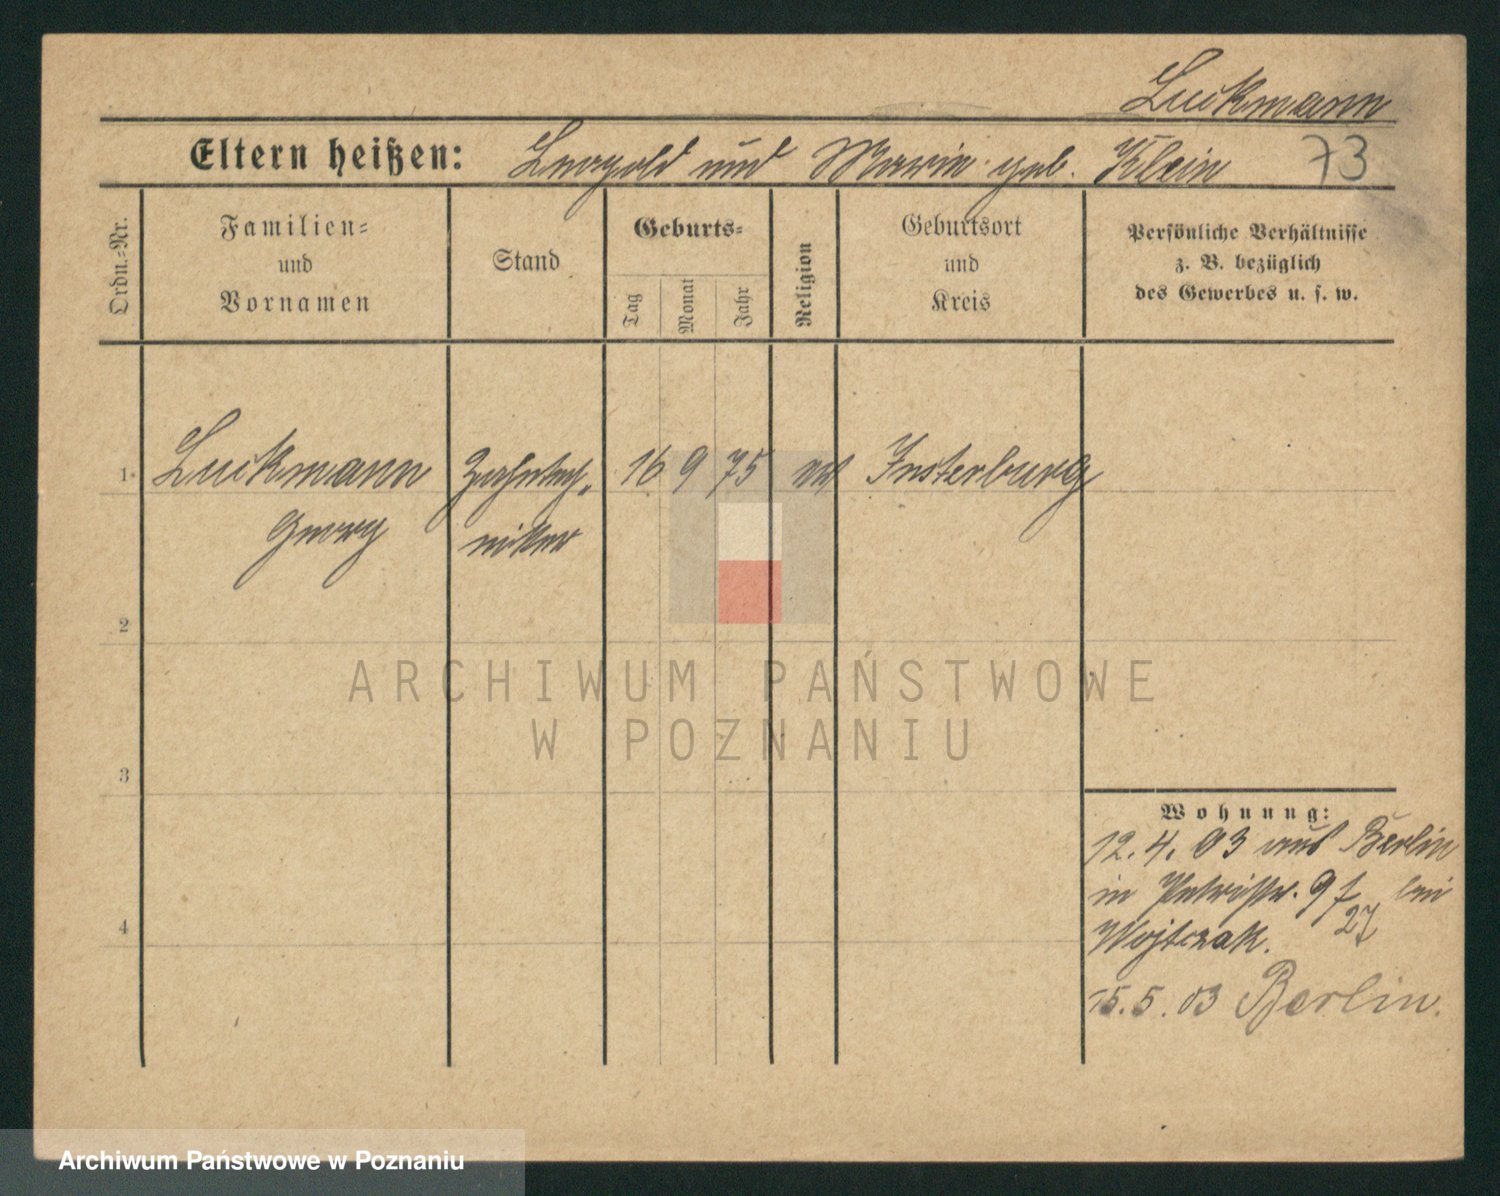 Luckmann
Eltern heißen: Leopold und Marie geb. Klein 73
Ordn.=Nr.
Familien=
und
Vornamen
Stand
Geburts=
Tag
Monat
Jahr
Religion
Geburtsort
und
Kreis
Persönliche Verhältnisse
z. B. bezüglich
des Gewerbes u. s. w.
1. Luckmann Zahntech- 16 9 75 Insterburg
Georg niker
2
3
4
ARCHIWUM PAŃSTWOWE
W POZNANIU
Wohnung:
12. 4. 03 aus Berlin
in Petristr. 9 bei
27
Wojtczak.
15. 5. 03 Berlin.
Archiwum Państwowe w Poznaniu